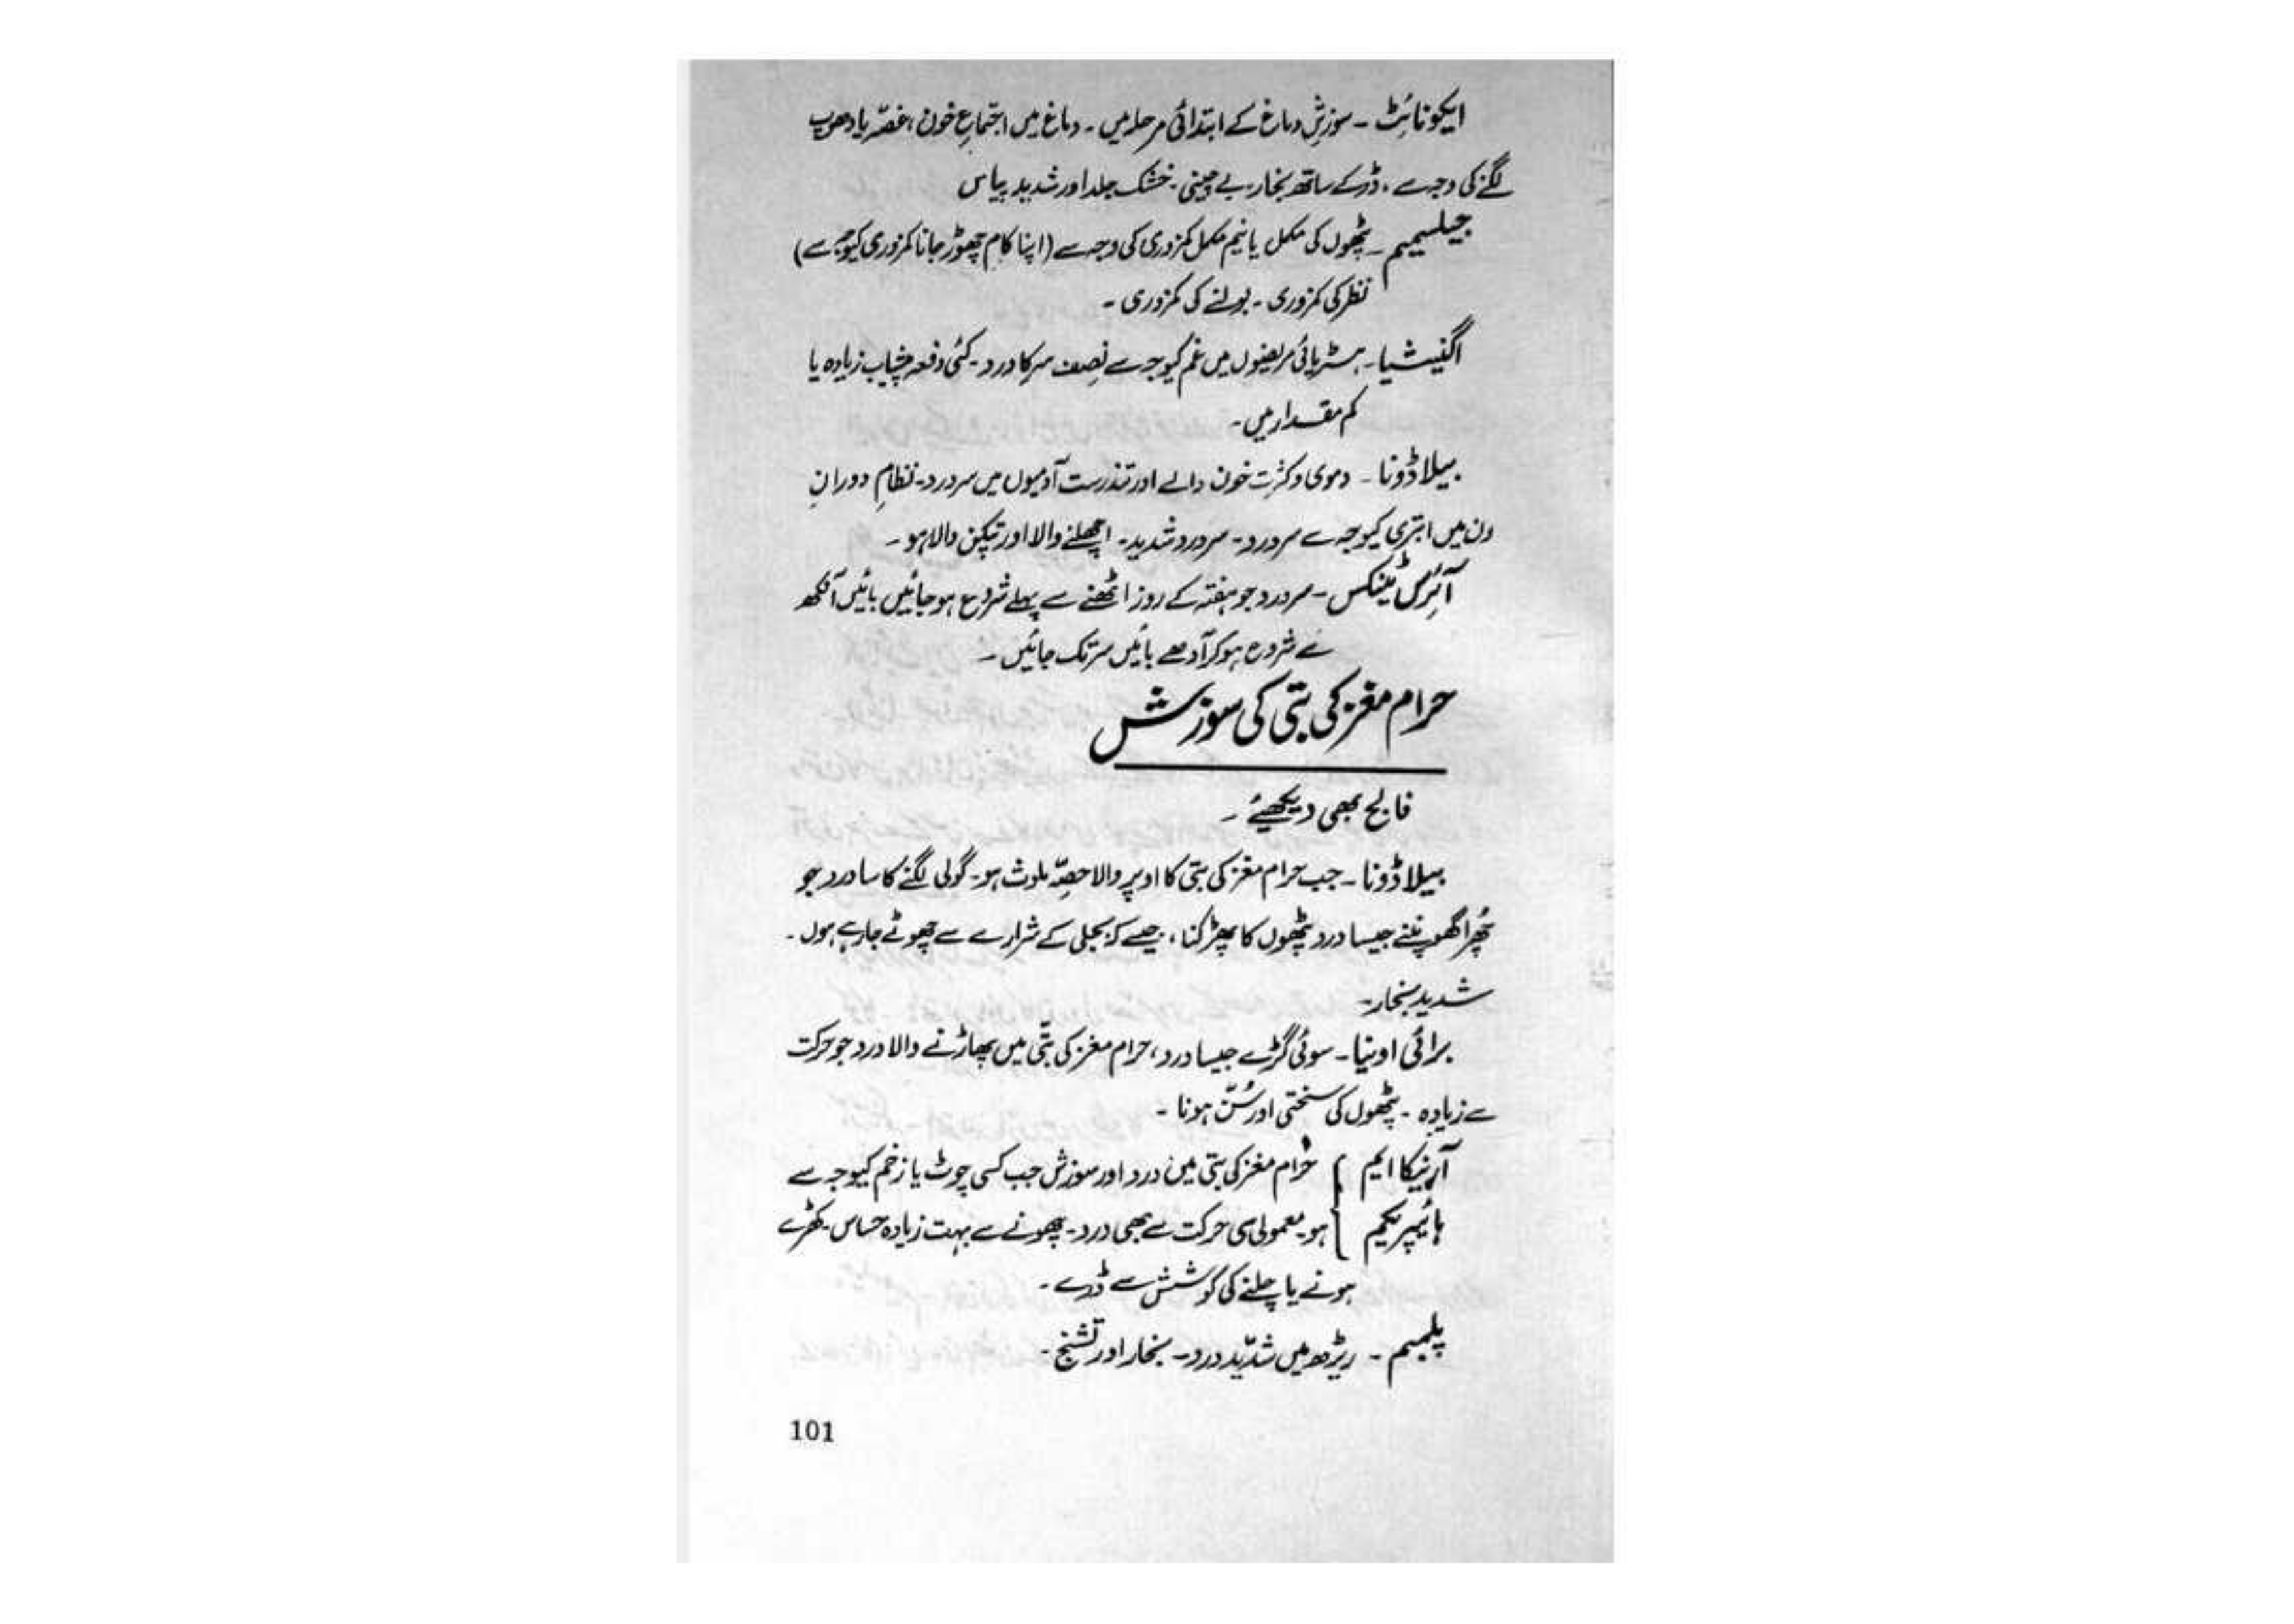 ایکونائٹ - سوزشِ دماغ کے ابتدائی مرحلہ میں - دماغ میں اجتماعِ خون، غصّہ یا دھوپ
لگنے کی وجہ سے، ڈر کے ساتھ بخار، بے چینی - خشک جلد اور شدید پیاس
جیلسیمیم - پٹھوں کی مکمل یا نیم مکمل کمزوری کی وجہ سے (اپنا کام چھوڑ جانا کمزوری کیوجہ سے)
نظر کی کمزوری - بولنے کی کمزوری -
اگنیشیا - ہسٹریائی مریضوں میں غم کیوجہ سے نصف سر کا درد - کئی دفعہ پیشاب زیادہ یا
کم مقدار میں -
بیلاڈونا - دموی و کثرت خون والے اور تندرست آدمیوں میں سر درد - نظامِ دورانِ
ون میں ابتری کیوجہ سے سر درد - سر درد شدید - اچھلنے والا اور تپکن والا ہو -
آئرس ٹینکس - سر درد جو ہفتہ کے روز اٹھنے سے پہلے شروع ہو جائیں بائیں آنکھ
سے شروع ہو کر آدھے بائیں سر تک جائیں -
حرام مغز کی بتی کی سوزش
فالج بھی دیکھیئے -
بیلاڈونا - جب حرام مغز کی بتی کا اوپر والا حصّہ ملوث ہو - گولی لگنے کا سا درد جو
چُھرا گھوپنے جیسا درد پٹھوں کا پھڑکنا، جیسے کہ بجلی کے شرارے سے چھوئے جا رہے ہوں -
شدید بخار -
برائی اونیا - سوئی گڑے جیسا درد، حرام مغز کی بتّی میں پھاڑنے والا درد جو حرکت
سے زیادہ - پٹھوں کی سختی اور سُنّ ہونا -
آرنیکا ایم } حرام مغز کی بتی میں درد اور سوزش جب کسی چوٹ یا زخم کیوجہ سے
ہائیپریکیم } ہو - معمولی سی حرکت سے بھی درد - چھونے سے بہت زیادہ حساس - کھڑے
ہونے یا چلنے کی کوشش سے ڈرے -
پلمبم - ریڑھ میں شدید درد - بخار اور تشنج -
101